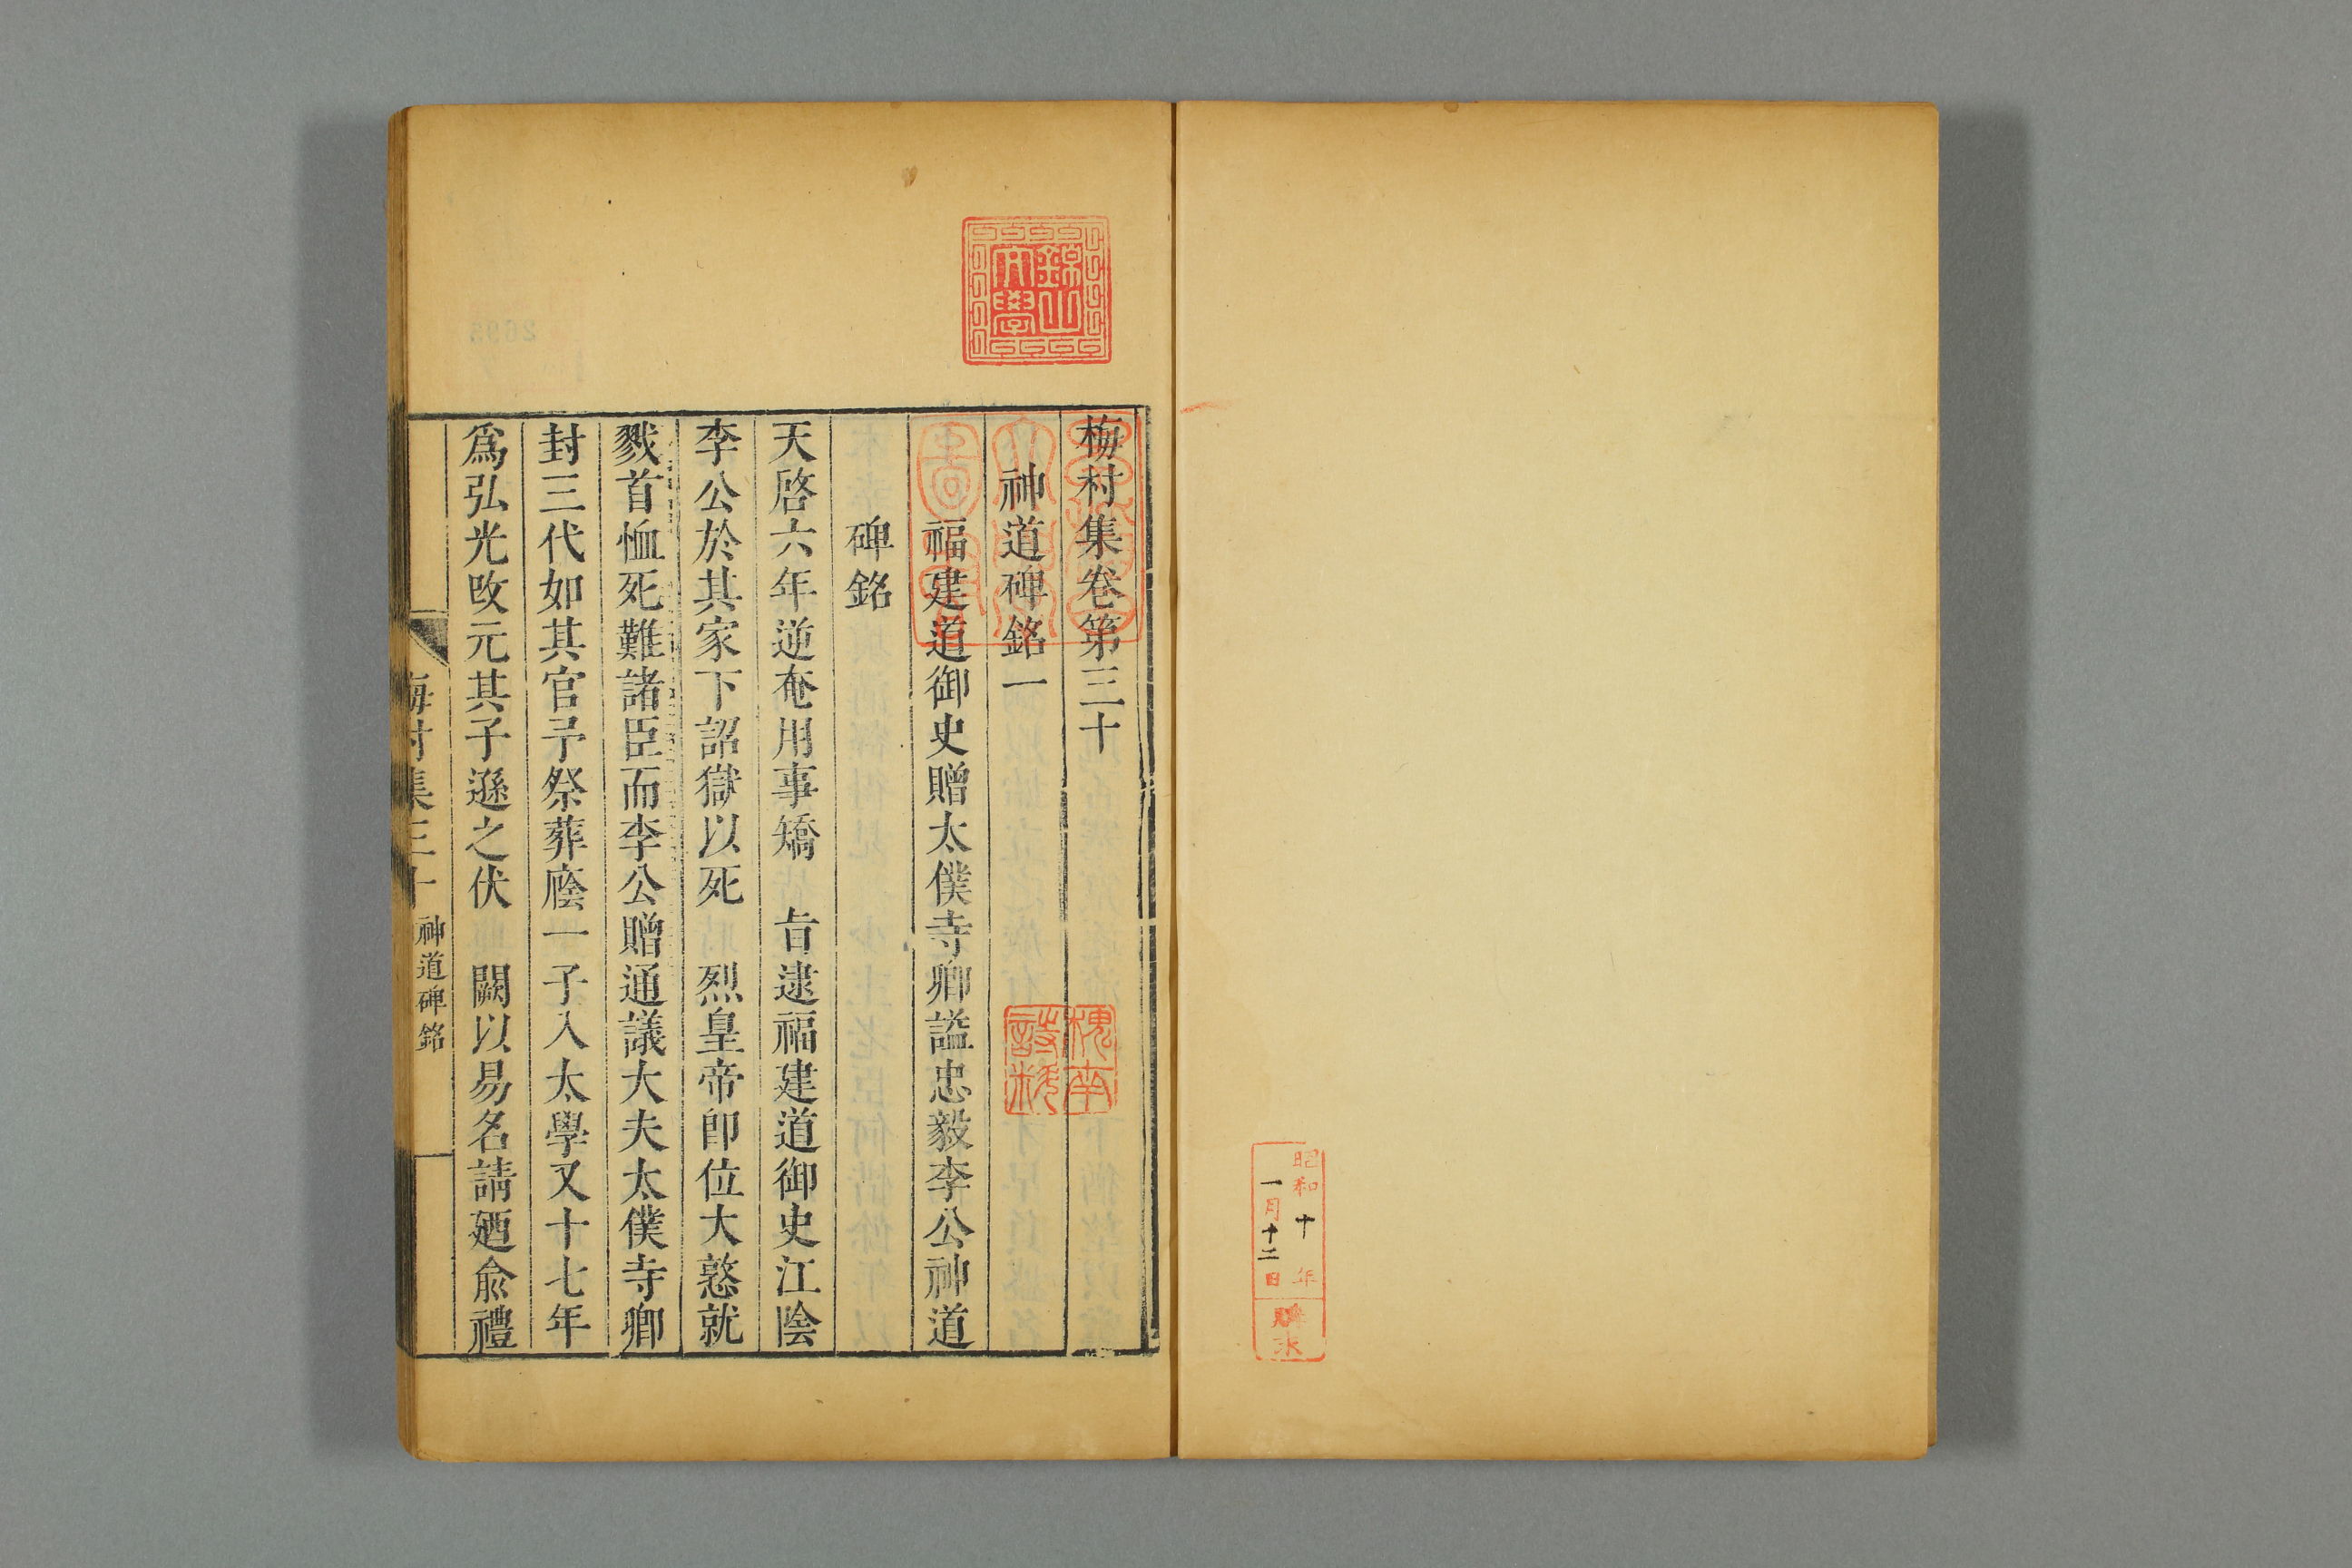 昭和十年
一月十二日
購求
錦山
文學
梅村集卷第三十
神道碑銘一
福建道御史贈太僕寺卿謚忠毅李公神道
碑銘
天啓六年逆奄用事矯 旨逮福建道御史江陰
李公於其家下詔獄以死 烈皇帝卽位大憝就
戮首恤死難諸臣而李公贈通議大夫太僕寺卿
封三代如其官予祭葬廕一子入太學又十七年
爲弘光改元其子遜之伏 闕以易名請廼兪禮
梅村集三十 神道碑銘
槐南
詩料